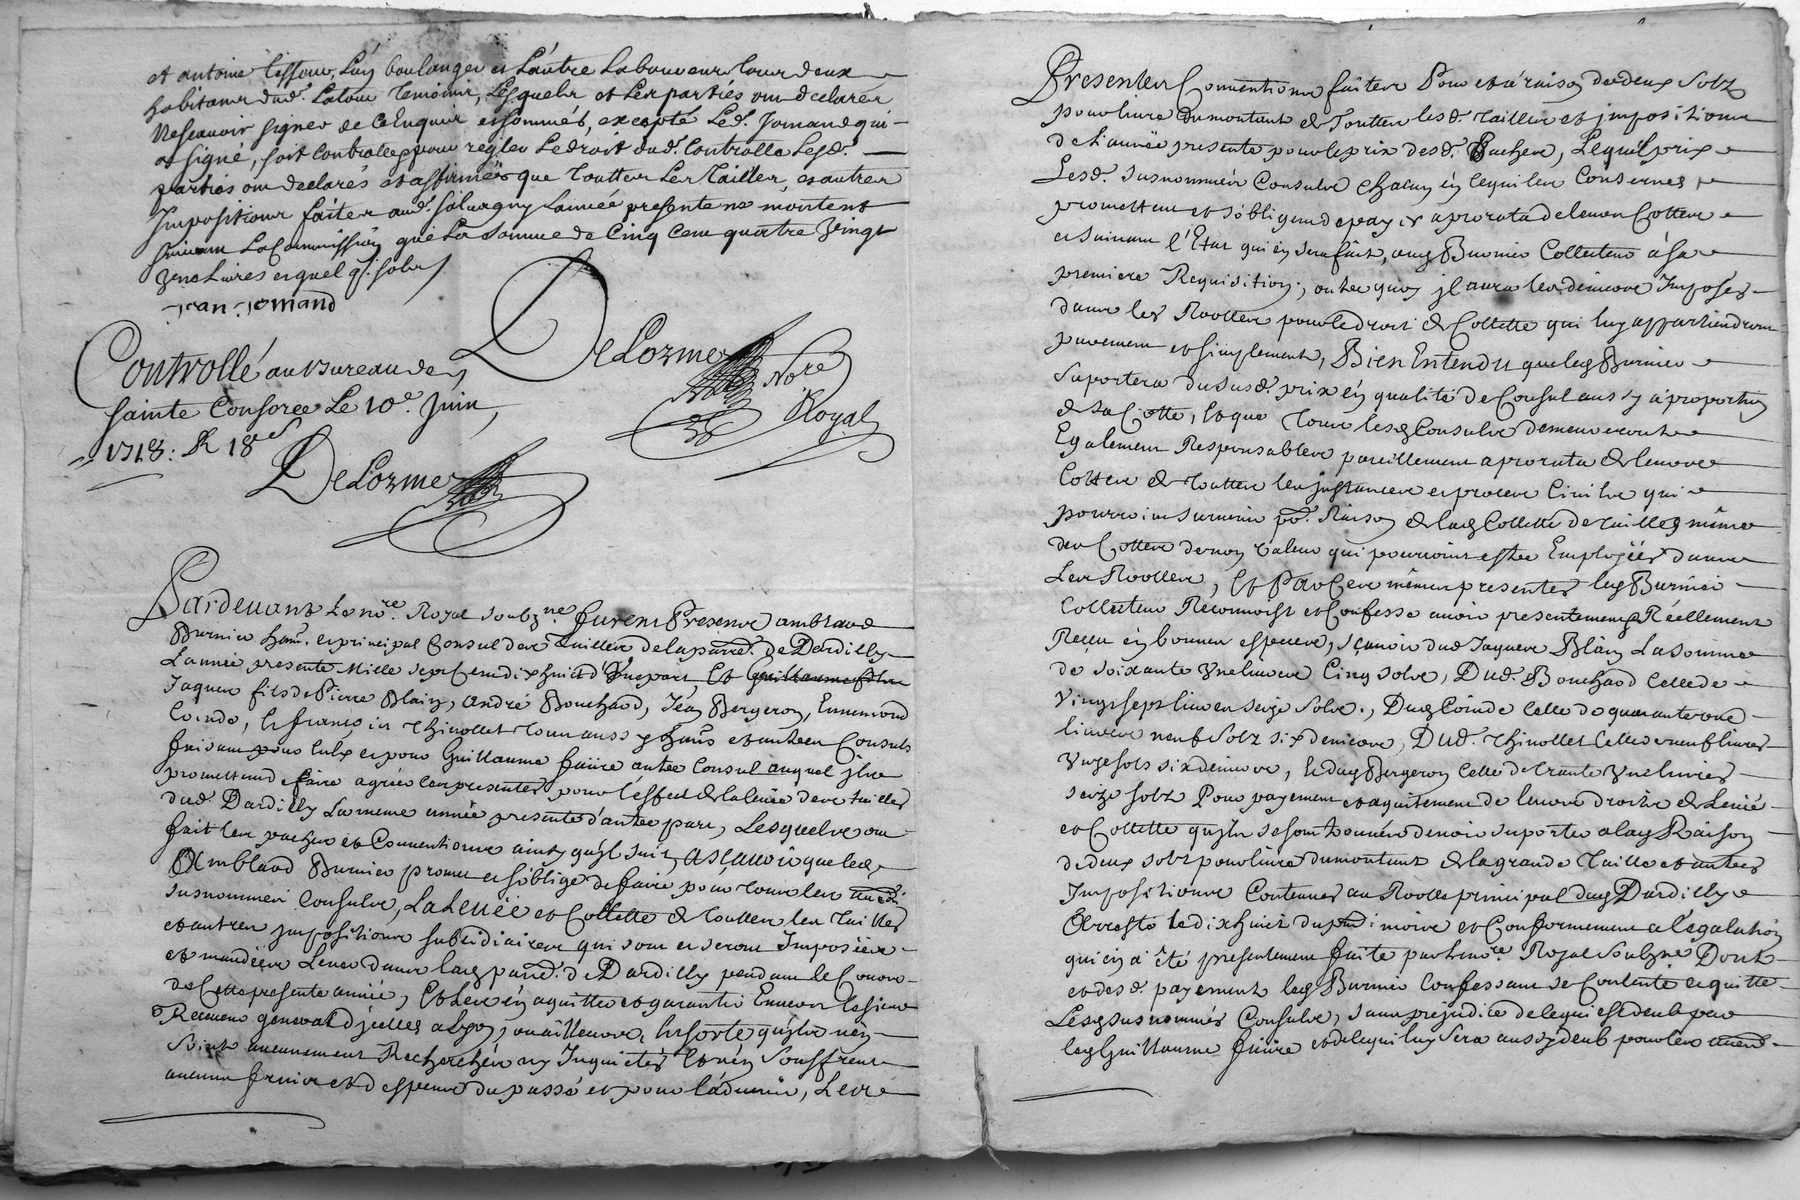 et antoine Tisseur, L'un boulanger et L'autre Laboureur tous deux
habitans dud. Latour Temoins, Lesquels et Les parties ont declarés
Nescavoir signer de ce Enquis et sommés, excepté Led. Jomand qui
a signé, soit Controllé pour regler Le droit dud. Controlle Lesd.
parties ont declarés et affirmés que Touttes Les Tailles, et autres
Impositions faites aud. Salvagny L'année presente ne montent
suivant La Commission que La somme de Cinq Cent quatre Vingt
Jean Jomand
Controllé au Bureau de
Sainte Consorce Le 10e. Juin
1718: R 18s
DeLorme
Nore
Royal
DeLorme
Pardevant Le nore. Royal soubzne. furent Presents amblard
Burnier hant. et principal Consul des Tailles de la parre. de Dardilly
L'année presente Mille sept Cent dix huict d'Une part Et
Jaques fils de Pierre Blain, andré Bouchard, Jean Bergeron, Ennemond
Coindo, et françois Thinollet Tous aussy hans et autres Consuls
faisant pour Eulx et pour Guillaume faure autre Consul auquel ils
promettent faire agréer Les presentes pour L'effect de la levée des tailles
dud. Dardilly La meme année presente d'autre part, Lesquels ont
fait Les paches et Conventions ainsy qu'il suit, ascavoir que led.
Amblard Burnier promet et s'oblige de faire pour Tous les
susnommés Consuls, La Levée et Collette de Touttes les Tailles
et autres impositions subsidiaires qui sont et seront Imposées
et mandées Lever dans lad. parre. de Dardilly pendant le Courant
de Cette presente année, Et Les en aquitter et garantir Envers le sieur
Receveur general d'icelles a Lyon, ou ailleurs, En sorte qu'ils n'en
soient aucunement Recherchés ny Inquietés Et n'en souffrent
aucuns frais et despens du passé et pour l'advenir, Les
Presentes Conventions faites Pour et a raison de deux solz
pour livre du montant de Touttes lesd. Tailles et impositions
de L'année presente pour le prix desd. Paches, Lequel prix
Lesd. susnommés Consuls chacun en ce qui les Conserne
promettent et s'obligent de payer a prorata de leurs Cottes
et suivant l'Etat qui en sera fait, aud. Burnier Collecteur a sa
premiere Requisition, outre quoy il aura les deniers Imposés
dans les Rooles pour le droit de Collette qui luy appartiendront
purement et simplement, Bien Entendu que led. Burnier
suportera du susd. prix en qualité de Consul aussy a proportion
de sa Cotte, Et que Tous lesd. Consuls demeureront
Egalement Responsables pareillement a prorata de leurs
Cottes de Touttes les instances et proces Civils qui
pourroient survenir pr. Raison de lad. Collette de tailles même
des Cottes de non valeur qui pourroient estre Employées dans
Les Rooles, Et Par Ces mêmes presentes led. Burnier
Collecteur Reconnoist et Confesse avoir presentement Réellement
Receu en bonnes especes, sçavoir dud. Jaques Blain La somme
de soixante Une livres Cinq sols, Dud. Bouchard Celle de
Vingt sept livres seize sols, Dud. Coindo Celle de quarante une
livres neuf solz six deniers, Dud. Thinollet Celle de neuf livres
Unze sols six deniers, Et dud. Bergeron Celle de Trante Une livres
seize solz Pour payement et aquitement de leurs droits de Levée
et Collette qu'ils se sont trouvés devoir suporter a lad. Raison
de deux solz pour livre du montant de la grande Taille et autres
Impositions Contenues au Roolle principal dud. Dardilly
Arresté Le dix huict du pnt. mois et Conformement a l'egalation
qui en a été presentement faite par le nore. Royal soubzné Dont
et desd. payements led. Burnier Confessant se Contente et quitte
Lesd. susnommés Consuls, sans prejudice de ce qui est deub par
led. Guillaume faure et de ce qui luy sera aussy deub pour les